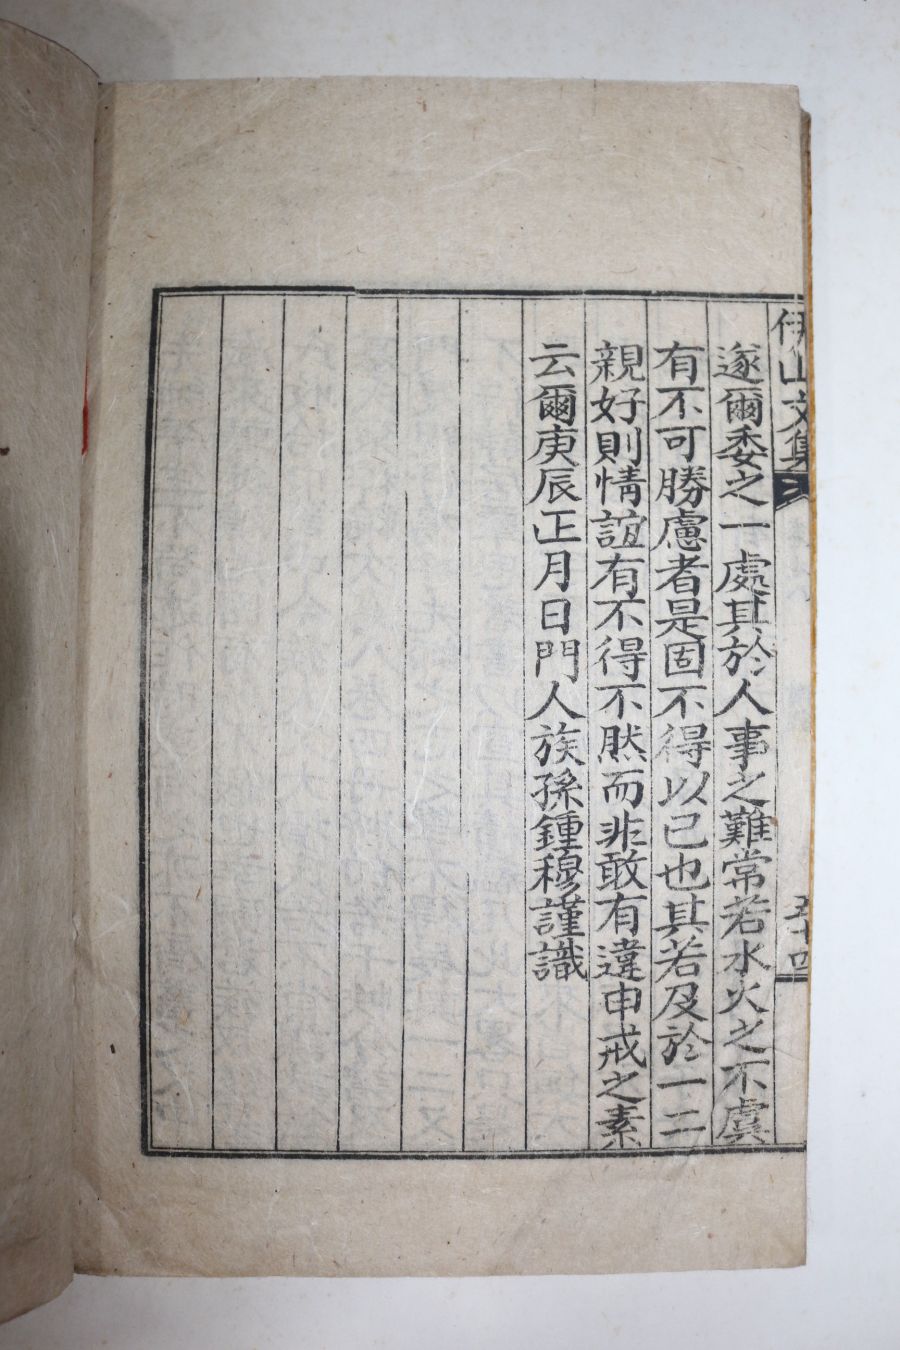 伊山文集
五十四
遂爾委之一處其於人事之難常若水火之不虞
有不可勝慮者是固不得以已也其若及於一二
親好則情誼有不得不然而非敢有違申戒之素
云爾庚辰正月日門人族孫鍾穆謹識